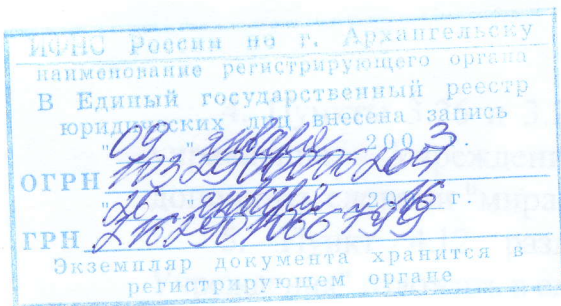 ИФНС России по г. Архангельску
наименование регистрирующего органа
В Единый государственный реестр
юридических лиц внесена запись
"09" января 2003
ОГРН
"26" января 2016 г.
ГРН
Экземпляр документа хранится в
регистрирующем органе